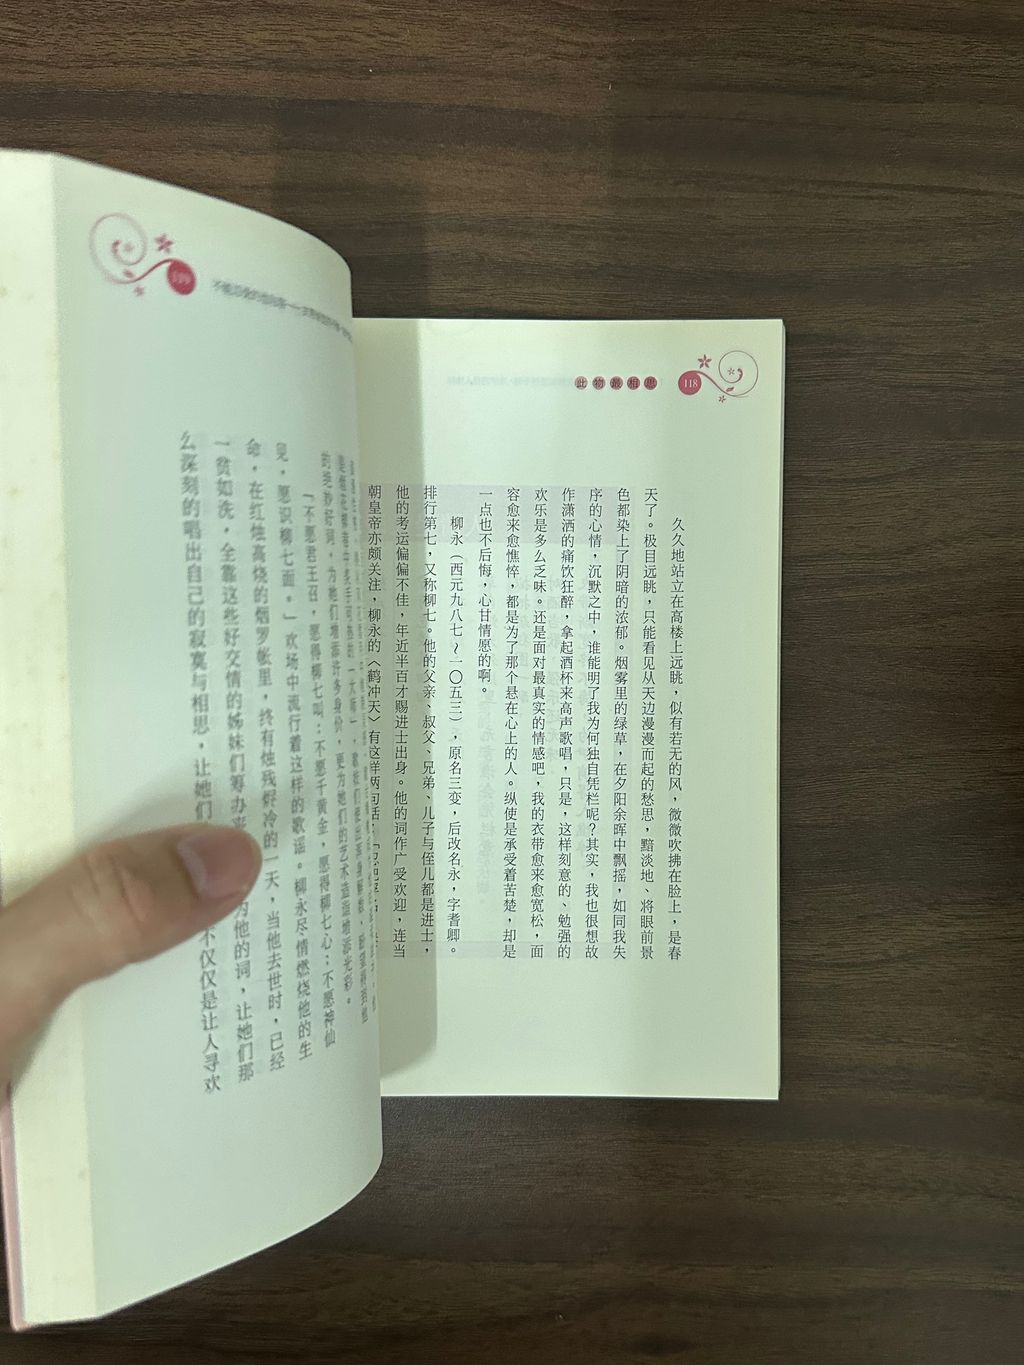 118
此物最相思
久久地站立在高楼上远眺，似有若无的风，微微吹拂在脸上，是春
天了。极目远眺，只能看见从天边漫漫而起的愁思，黯淡地、将眼前景
色都染上了阴暗的浓郁。烟雾里的绿草，在夕阳余晖中飘摇，如同我失
序的心情，沉默之中，谁能明了我为何独自凭栏呢？其实，我也很想故
作潇洒的痛饮狂醉，拿起酒杯来高声歌唱，只是，这样刻意的、勉强的
欢乐是多么乏味。还是面对最真实的情感吧，我的衣带愈来愈宽松，面
容愈来愈憔悴，都是为了那个悬在心上的人。纵使是承受着苦楚，却是
一点也不后悔，心甘情愿的啊。
柳永（西元九八七～一〇五三），原名三变，后改名永，字耆卿。
排行第七，又称柳七。他的父亲、叔父、兄弟、儿子与侄儿都是进士，
他的考运偏偏不佳，年近半百才赐进士出身。他的词作广受欢迎，连当
朝皇帝亦颇关注，柳永的〈鹤冲天〉有这样两句话：「忍把浮
119
的绝妙好词，为她们增添许多身价，更为她们的艺术造诣增添光彩。
「不愿君王召，愿得柳七叫；不愿千黄金，愿得柳七心；不愿神仙
见，愿识柳七面。」欢场中流行着这样的歌谣。柳永尽情燃烧他的生
命，在红烛高烧的烟罗帐里，终有烛残烬冷的一天，当他去世时，已经
一贫如洗，全靠这些好交情的姊妹们筹办 为他的词，让她们那
么深刻的唱出自己的寂寞与相思，让她们 不仅仅是让人寻欢